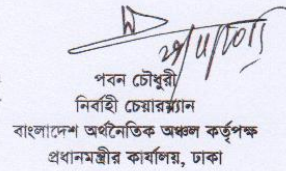 পবন চৌধুরী
নির্বাহী চেয়ারম্যান
বাংলাদেশ অর্থনৈতিক অঞ্চল কর্তৃপক্ষ
প্রধানমন্ত্রীর কার্যালয়, ঢাকা